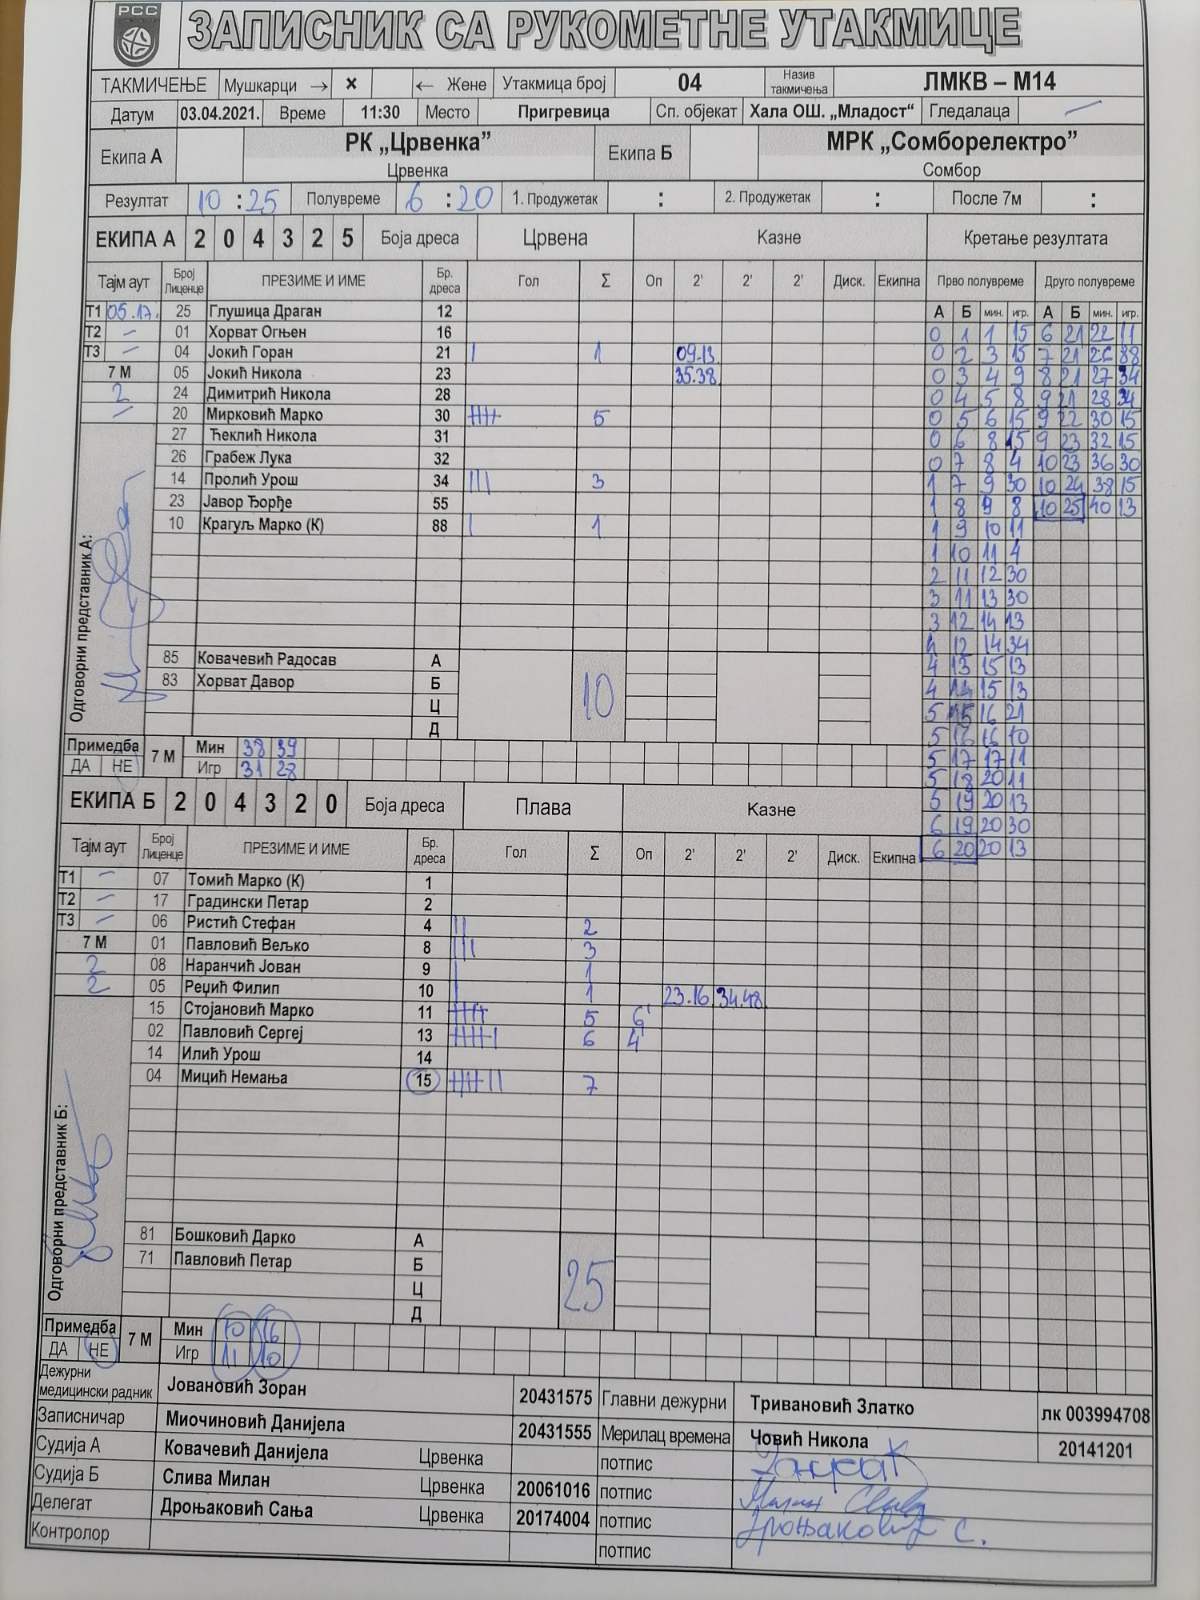 РСС
ЗАПИСНИК СА РУКОМЕТНЕ УТАКМИЦЕ
ТАКМИЧЕЊЕ Мушкарци → × ← Жене Утакмица број 04 Назив такмичења ЛМКВ – М14
Датум 03.04.2021. Време 11:30 Место Пригревица Сп. објекат Хала ОШ. „Младост“ Гледалаца –
Екипа А РК „Црвенка” Екипа Б МРК „Сомборелектро”
Црвенка Сомбор
Резултат 10 : 25 Полувреме 6 : 20 1. Продужетак : 2. Продужетак : После 7м :
ЕКИПА А 2 0 4 3 2 5 Боја дреса Црвена Казне Кретање резултата
Тајм аут Број Лиценце ПРЕЗИМЕ И ИМЕ Бр. дреса Гол Σ Оп 2' 2' 2' Диск. Екипна Прво полувреме Друго полувреме
Т1 05.17. 25 Глушица Драган 12 А Б мин. игр. А Б мин. игр.
Т2 – 01 Хорват Огњен 16 0 1 1 15 6 21 22 11
Т3 – 04 Јокић Горан 21 | 1 09.13 0 2 3 15 7 21 26 88
7 М 05 Јокић Никола 23 35.38 0 3 4 9 8 21 27 34
2 24 Димитрић Никола 28 0 4 5 8 9 21 28 34
– 20 Мирковић Марко 30 5 0 5 6 15 9 22 30 15
27 Ћеклић Никола 31 0 6 8 15 9 23 32 15
26 Грабеж Лука 32 0 7 8 4 10 23 36 30
14 Пролић Урош 34 ||| 3 1 7 9 30 10 24 38 15
23 Јавор Ђорђе 55 1 8 9 8 10 25 40 13
10 Крагуљ Марко (К) 88 | 1 1 9 10 11
1 10 11 4
2 11 12 30
3 11 13 30
3 12 14 13
4 12 14 34
Одговорни представник А:
85 Ковачевић Радосав А 4 13 15 13
83 Хорват Давор Б 10 4 14 15 13
Ц 5 15 16 21
Д 5 16 16 10
Примедба 7 М Мин 38 39 5 17 17 11
ДА НЕ Игр 31 28 5 18 20 11
ЕКИПА Б 2 0 4 3 2 0 Боја дреса Плава Казне 5 19 20 13
6 19 20 30
Тајм аут Број Лиценце ПРЕЗИМЕ И ИМЕ Бр. дреса Гол Σ Оп 2' 2' 2' Диск. Екипна 6 20 20 13
Т1 – 07 Томић Марко (К) 1
Т2 – 17 Градински Петар 2
Т3 – 06 Ристић Стефан 4 || 2
7 М 01 Павловић Вељко 8 ||| 3
2 08 Наранчић Јован 9 | 1
2 05 Рецић Филип 10 | 1 23.16 34.48
15 Стојановић Марко 11 5 6'
02 Павловић Сергеј 13 6 4'
14 Илић Урош 14
04 Мицић Немања 15 7
Одговорни представник Б:
81 Бошковић Дарко А
71 Павловић Петар Б 25
Ц
Д
Примедба 7 М Мин 10 16
ДА НЕ Игр 11 10
Дежурни медицински радник Јовановић Зоран 20431575 Главни дежурни Тривановић Златко лк 003994708
Записничар Миочиновић Данијела 20431555 Мерилац времена Човић Никола 20141201
Судија А Ковачевић Данијела Црвенка потпис
Судија Б Слива Милан Црвенка 20061016 потпис
Делегат Дроњаковић Сања Црвенка 20174004 потпис Дроњаковић С.
Контролор потпис